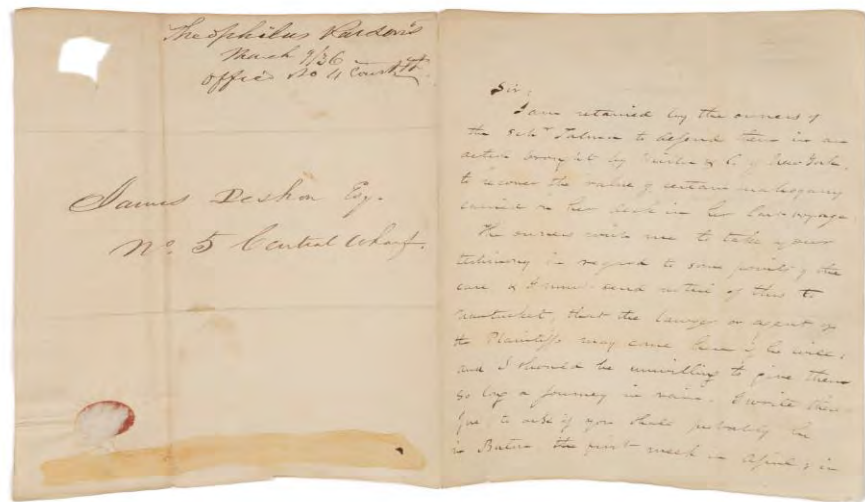 Theophilus Parsons
March 9/36
Office No 4 Court St.
James Deshon Esq.
No. 5 Central Wharf.
Sir,
I am retained by the owners of
the Schr to defend them in an
action brought by & Co. of New York,
to recover the value of certain mahogany
carried on her deck in her last voyage.
The owners wish me to take your
testimony in regard to some points of the
case & I must send notice of this to
Nantucket, that the lawyer or agent of
the Plaintiffs may come here if he will;
and I should be unwilling to give them
so long a journey in vain. I write there-
fore to ask if you shall probably be
in Boston the first week in April & in